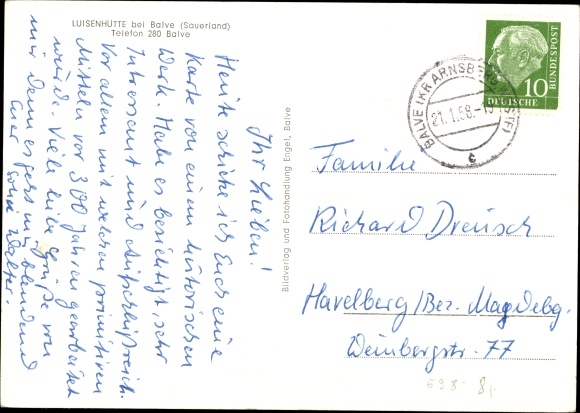 LUISENHÜTTE bei Balve (Sauerland)
Telefon 280 Balve
Ihr Lieben!
Heute schicke ich Euch eine
Karte von einem historischen
Werk. Habe es besichtigt, sehr
Interessant und aufschlußreich.
Vor allem mit welchen primitiven
Mitteln vor 300 Jahren gearbeitet
wurde. Viele liebe Grüße von
mir denn es geht mir blendend
Euer Walter.
Bildverlag und Fotohandlung Engel, Balve
BALVE (KR ARNSBERG
21.1.58.-
c
10
DEUTSCHE
BUNDESPOST
Familie
Richard Dreusch
Havelberg/Bez. Magdebg.
Weinbergstr. 77
698- 8,-